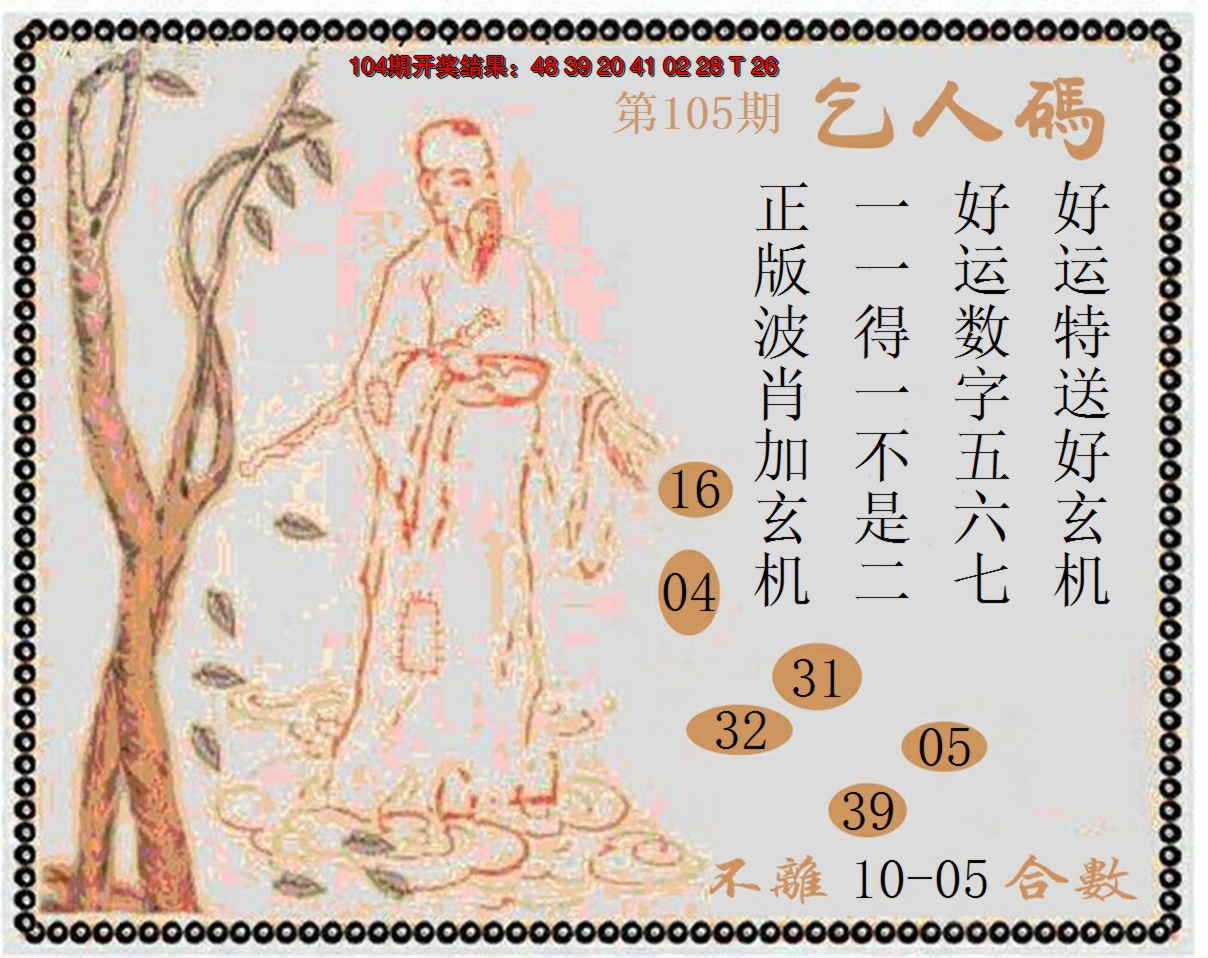 104期开奖结果：48 39 20 41 02 28 T 26
第105期 乞人碼
好运特送好玄机
好运数字五六七
一一得一不是二
正版波肖加玄机
16
04
31
32
05
39
不離 10-05 合數